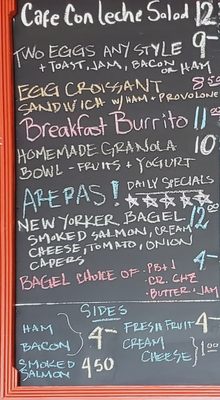 Cafe Con Leche Salad 12
TWO EGGS ANY STYLE 9-
+ TOAST, JAM, BACON OR HAM
EGG CROISSANT 8 50
SANDWICH W/ HAM + PROVOLONE
Breakfast Burrito 11 00
HOMEMADE GRANOLA 10
BOWL - FRUITS + YOGURT
AREPAS! DAILY SPECIALS
NEW YORKER BAGEL 12 00
SMOKED SALMON, CREAM
CHEESE, TOMATO, ONION
CAPERS
BAGEL CHOICE OF: PB+J 4-
CR. CHZ
BUTTER + JAM
SIDES
HAM
BACON 4-
SMOKED
SALMON 4 50
FRESH FRUIT 4-
CREAM
CHEESE 1 00